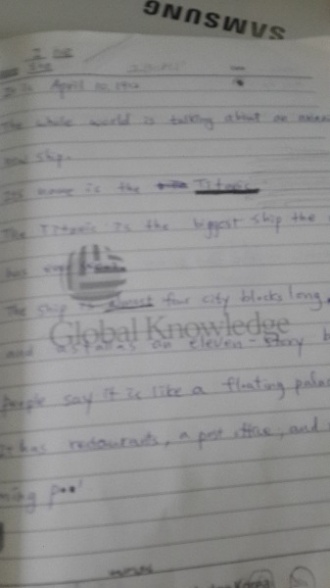 SAMSUNG
It is April 10, 1912
The whole world is talking about an
new ship.
Its name is the Titanic
The Titanic is the biggest ship the
has
The ship is almost four city blocks long,
Global Knowledge
and as tall as an eleven-story
People say it is like a floating
It has restaurants, a post office, and
ming pool